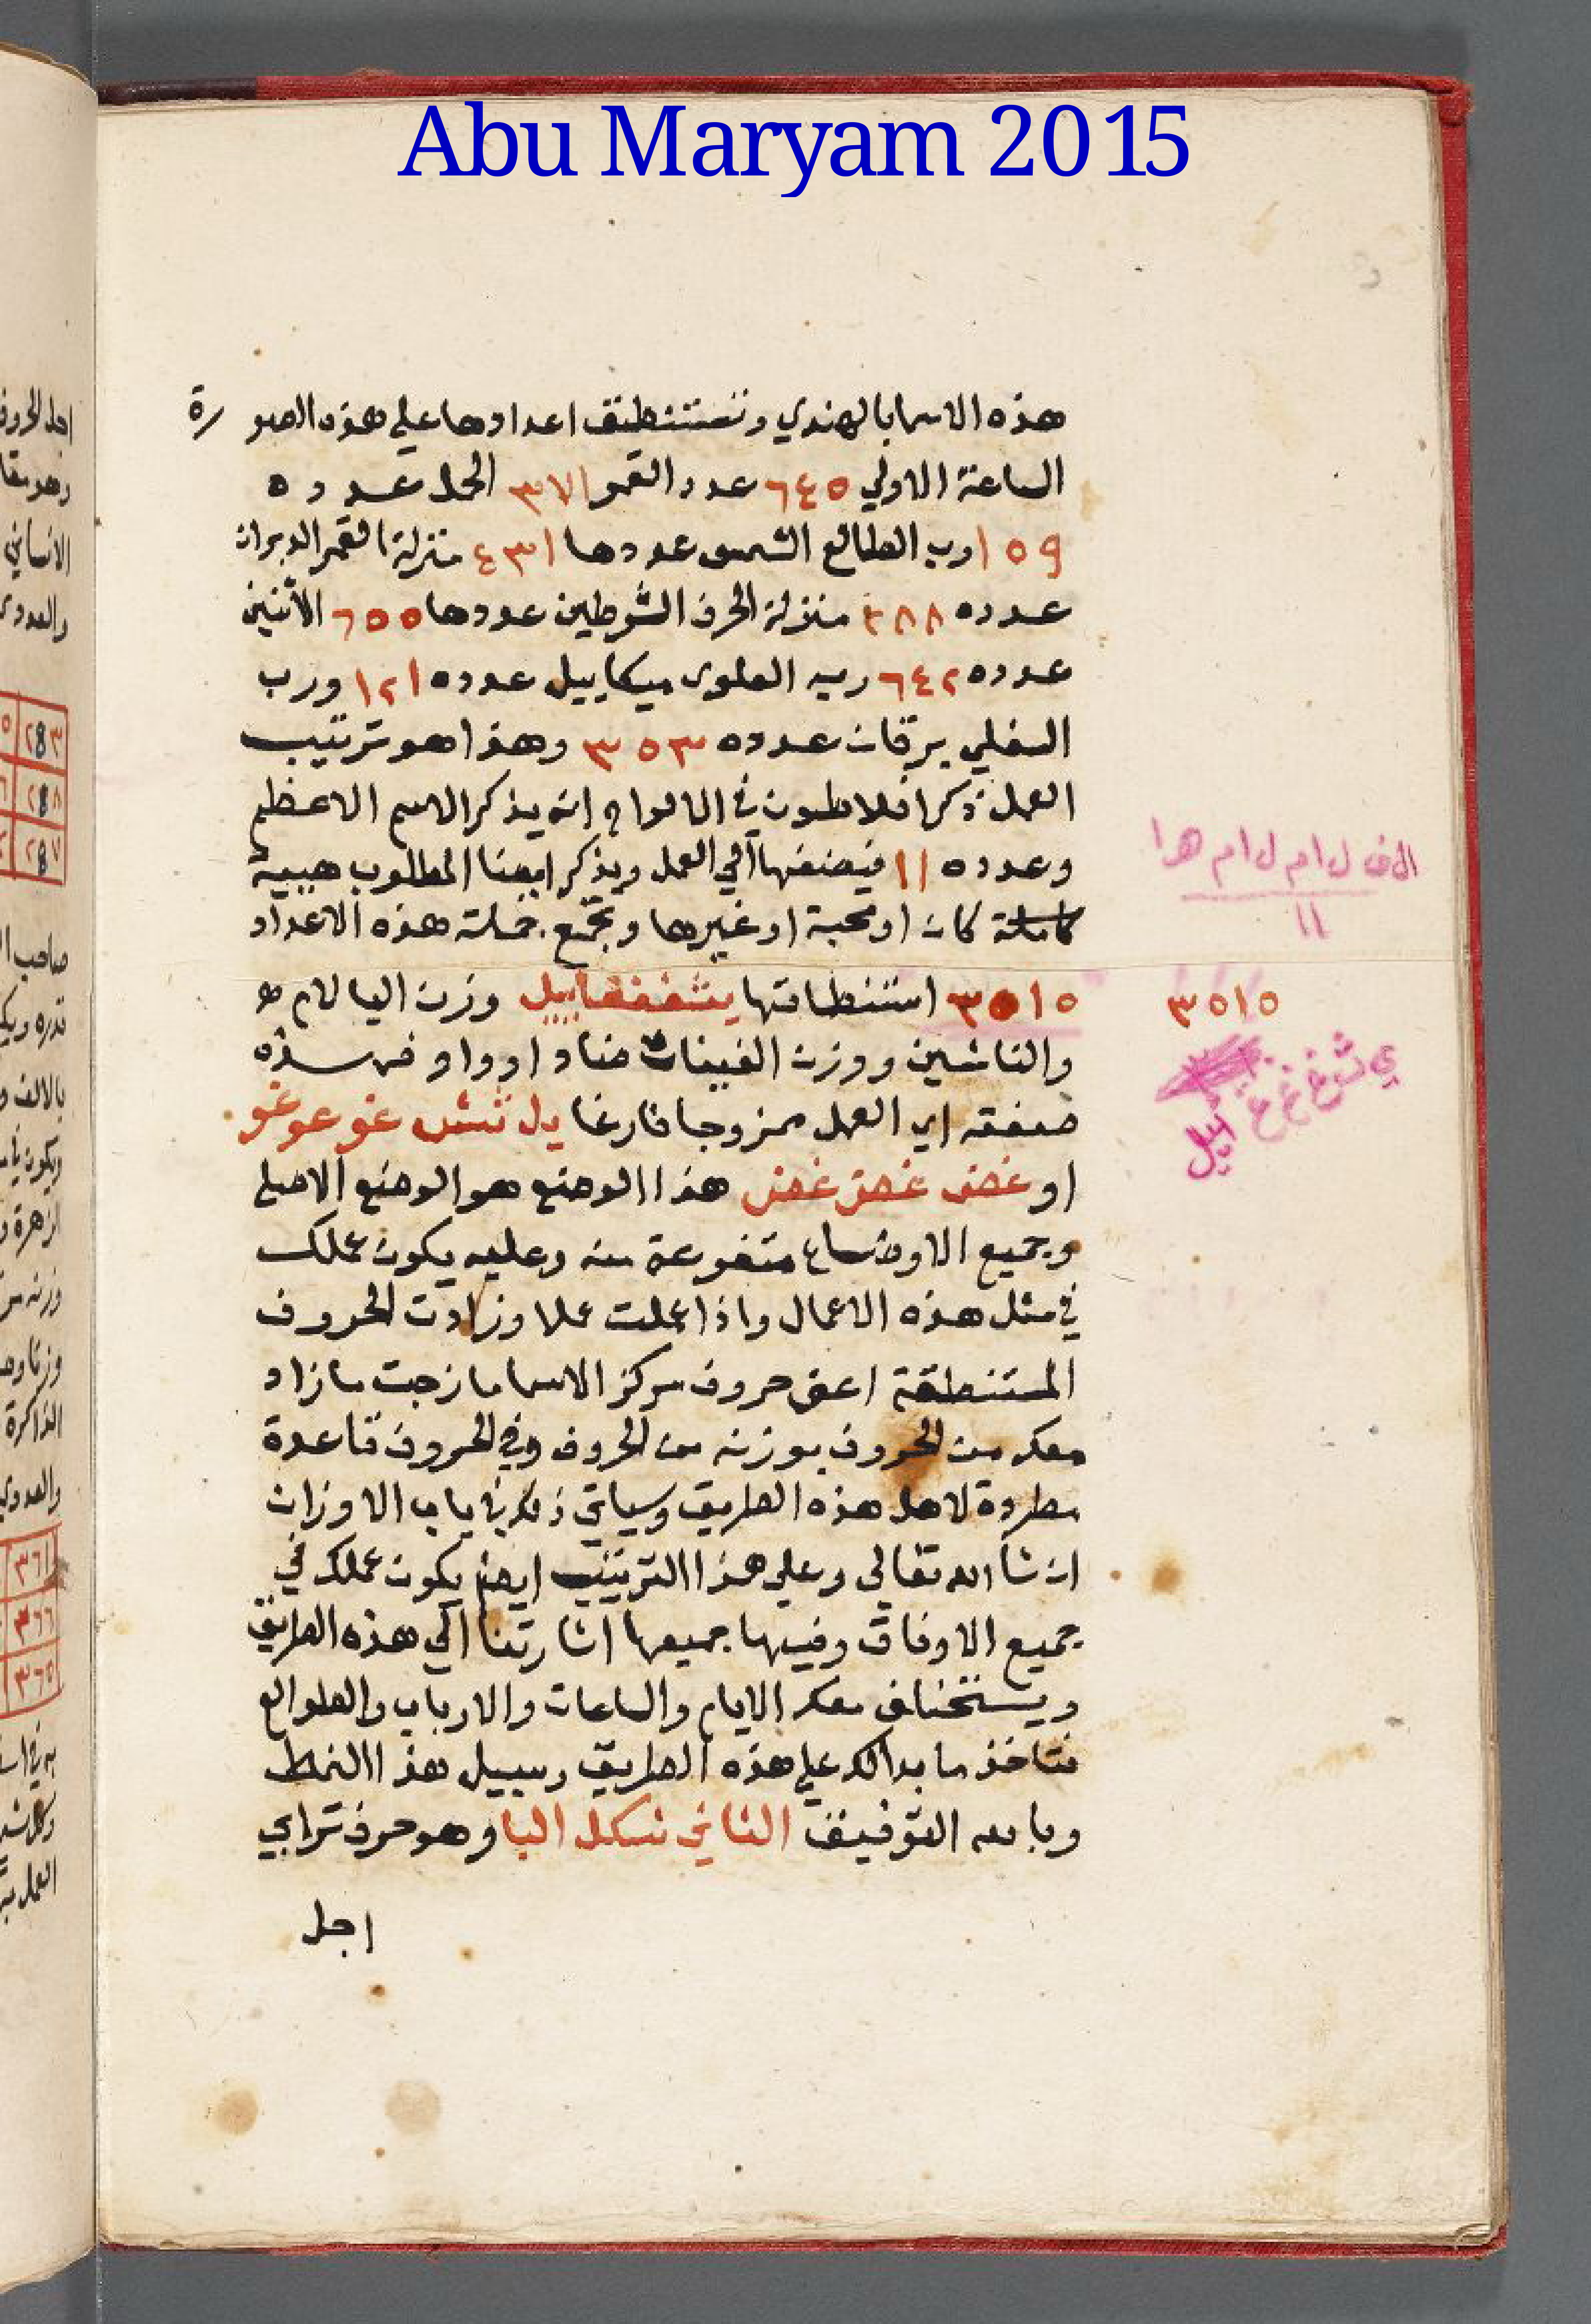 Abu Maryam 2015
هذه الاسما بالهندي وتستنطق اعدادها علي هذه الصورة
الساعة الاولي ٦٤٥ عدد القمر ٣٧١ الحمل عدده
١٥٩ رب الطالع الشمس عددها ٤٣١ منزلة القمر الدبران
عدده ٢٨٨ منزلة الحرف الشرطين عددها ٦٥٥ الاثنين
عدده ٦٤٢ ربه العلوي ميكاييل عدده ١٢١ ورب
السفلي برقان عدده ٣٥٣ وهذا هو ترتيب
العمل ذكر افلاطون في الالواح انه يذكر الاسم الاعظم
وعدده ١١ فيضفها الي العمل ويذكر ايضا المطلوب هيبة
كاملة كان او محبة او غيرها وتجتمع جملة هذه الاعداد
٣٥١٥ استنطاقها يثغغغاييل وزن اليا لام
والثا شين ووزن الغينات ضاد او واو
صفة اي العمل ممزوجا فارغا يل ثش غو غو غو
او غض غض غض هذا الوضع هو الوضع الاصلي
وجميع الاوضاع متفرعة منه وعليه يكون عملك
في مثل هذه الاعمال واذا عملت عملا وزادت الحروف
المستنطقة اعني حروف مركز الاسما مازجت ما زاد
معك من الحروف بوزنه من الحروف وفي الحروف قاعدة
مطردة لاهل هذه الطريق وسياتي ذكره في باب الاوزان
ان شا الله تعالي وعلي هذا الترتيب ايضا يكون عملك في
جميع الاوفاق وفيها جميعها اشارتنا الي هذه الطريق
ويستخلف معك الايام والساعات والارباب والطوالع
فتاخذ ما بدالك علي هذه الطريق وسبيل هذا النمط
وبالله التوفيق الثاني شكل البا وهو حرف ترابي
اجل
الف ل ام ل ام ه ا
١١
٣٥١٥
ي ث غ غ غ
اييل